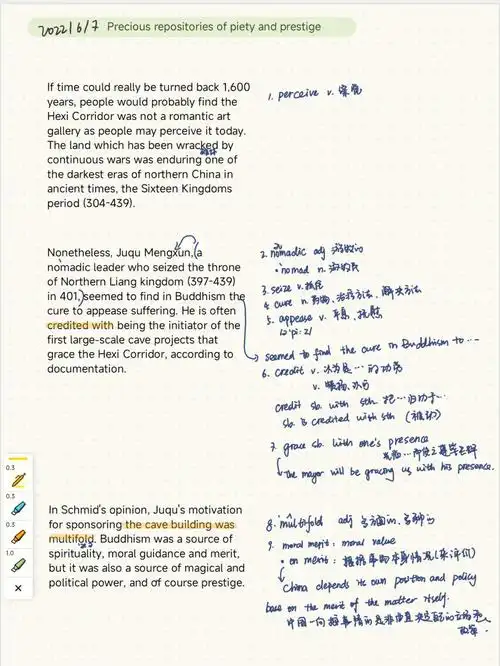 2022/6/7 Precious repositories of piety and prestige
If time could really be turned back 1,600
years, people would probably find the
Hexi Corridor was not a romantic art
gallery as people may perceive it today.
The land which has been wracked by
continuous wars was enduring one of
the darkest eras of northern China in
ancient times, the Sixteen Kingdoms
period (304-439).
1. perceive v. 察觉
Nonetheless, Juqu Mengxun, (a
nomadic leader who seized the throne
of Northern Liang kingdom (397-439)
in 401,) seemed to find in Buddhism the
cure to appease suffering. He is often
credited with being the initiator of the
first large-scale cave projects that
grace the Hexi Corridor, according to
documentation.
2. nomadic adj 游牧的
• nomad n. 游牧民
3. seize v. 抓住
4. cure n. 药物、治疗方法、解决方法
5. appease v. 平息、抚慰
seemed to find the cure in Buddhism to ...
6. credit v. 认为是...的功劳
v.
credit sb. with sth. 把...归功于...
sb. is credited with sth
7. grace sb. with one's presence
the mayor will be gracing us with his presence.
In Schmid's opinion, Juqu's motivation
for sponsoring the cave building was
multifold. Buddhism was a source of
spirituality, moral guidance and merit,
but it was also a source of magical and
political power, and of course prestige.
8. multifold adj 多方面的、多种的
9. moral merit: moral value
• on merit: 根据事物本身情况(来评价)
China depends its own position and policy
base on the merit of the matter itself.
中国一向根据事情的是非曲直来决定自己的立场和
政策.
0.3
0.3
0.3
1.0